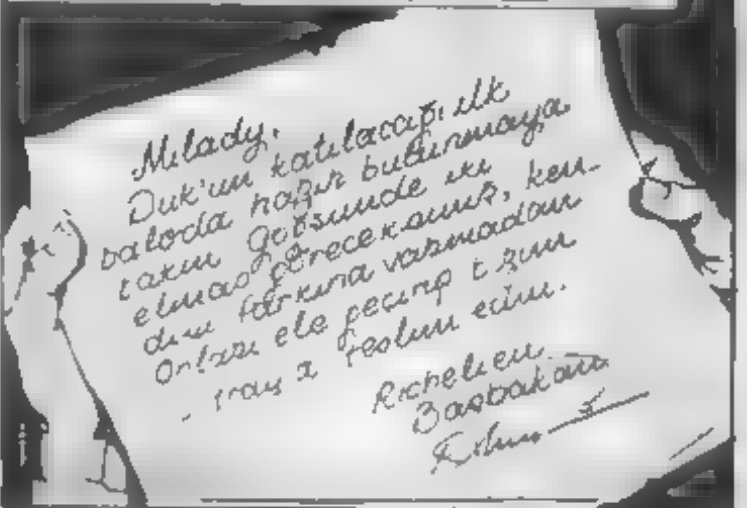 Milady,
Duk'un katılacağı ilk
baloda hazır bulunmaya
bakın göğsünde iki
elmas göreceksiniz, ken-
dini farkına varmadan
Onları ele geçirip
teslim edin.
Richelieu
Başbakan